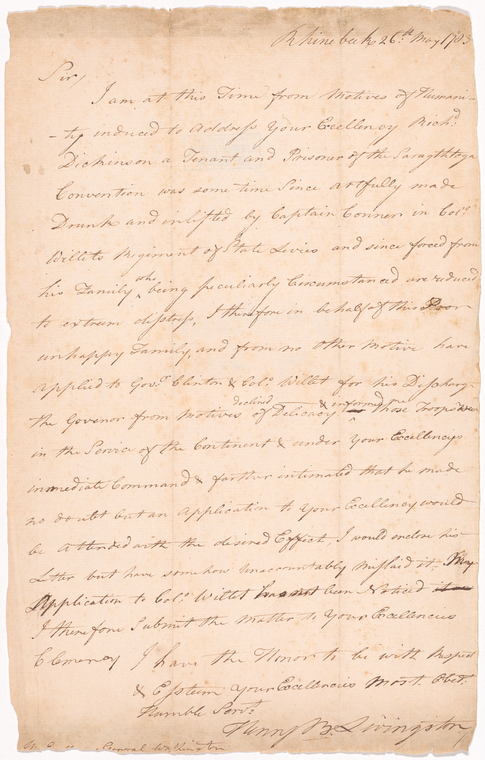 Rhinebeck 26th May 1783
Sir/
I am at this Time from Motives of Humani-
-ty induced to Address Your Excellency Richd.
Dickinson a Tenant and Prisoner of the Saraghtoga
Convention was some time Since artfully made
Drunk and inlisted by Captain Conner in Colo.
Willets Regiment of State Levies and since forced from
his Family who being peculiarly Circumstanced are reduced
to extrem distress, I therefore in behalf of this Poor
unhappy Family, and from no other Motive have
applied to Govr. Clinton & Colo. Willet for his Discharge
the Govenor from Motives of Delicacy declined & informed those Troops were
in the Service of the Continent & under Your Excellencys
immediate Command & farther intimated that he made
no doubt but an Application to Your Excellency would
be Attended with the desired Effect, I would enclose his
Letter but have somehow Unaccountably mislaid it. My
Application to Colo. Willet has not been Noticed
I therefore Submit the Matter to Your Excellencies
Clemency I have the Honor to be with Respect
& Esteem Your Excellencies Most Obet.
Humble Servt.
Henry B. Livingston
General Washington